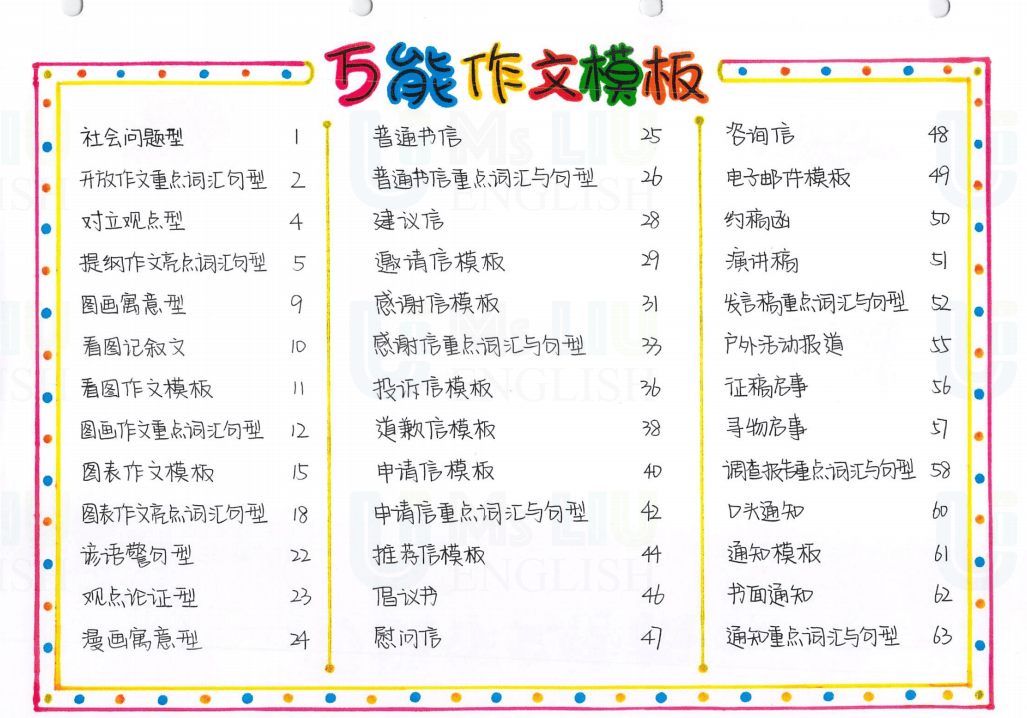 万能作文模板
社会问题型 1
开放作文重点词汇句型 2
对立观点型 4
提纲作文亮点词汇句型 5
图画寓意型 9
看图记叙文 10
看图作文模板 11
图画作文重点词汇句型 12
图表作文模板 15
图表作文亮点词汇句型 18
谚语警句型 22
观点论证型 23
漫画寓意型 24
普通书信 25
普通书信重点词汇与句型 26
建议信 28
邀请信模板 29
感谢信模板 31
感谢信重点词汇与句型 33
投诉信模板 36
道歉信模板 38
申请信模板 40
申请信重点词汇与句型 42
推荐信模板 44
倡议书 46
慰问信 47
咨询信 48
电子邮件模板 49
约稿函 50
演讲稿 51
发言稿重点词汇与句型 52
户外活动报道 55
征稿启事 56
寻物启事 57
调查报告重点词汇与句型 58
口头通知 60
通知模板 61
书面通知 62
通知重点词汇与句型 63
Ms LIU
ENGLISH
Ms LIU
ENGLISH
Ms LIU
ENGLISH